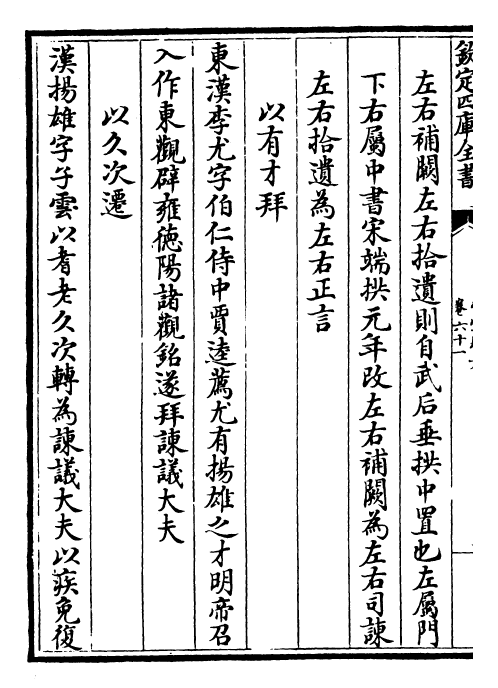 欽定四庫全書
卷六十一
左右補闕左右拾遺則自武后垂拱中置也左屬門
下右屬中書宋端拱元年改左右補闕為左右司諫
左右拾遺為左右正言
以有才拜
東漢李尤字伯仁侍中賈逵薦尤有揚雄之才明帝召
入作東觀辟雍德陽諸觀銘遂拜諫議大夫
以久次遷
漢揚雄字子雲以耆老久次轉為諫議大夫以疾免復